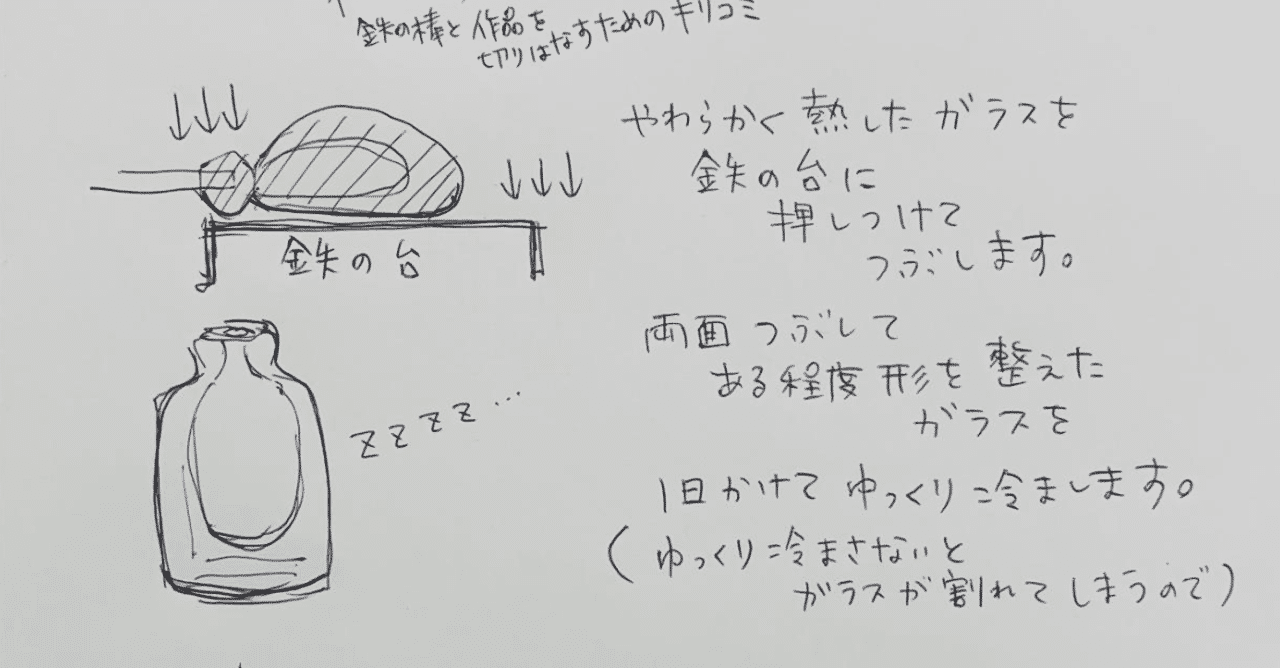 鉄の棒と作品を
切りはなすためのキリコミ
やわらかく熱したガラスを
鉄の台に
押しつけて
つぶします。
鉄の台
両面つぶして
ある程度形を整えた
ガラスを
zzzz…
1日かけてゆっくり冷まします。
(ゆっくり冷まさないと
ガラスが割れてしまうので)